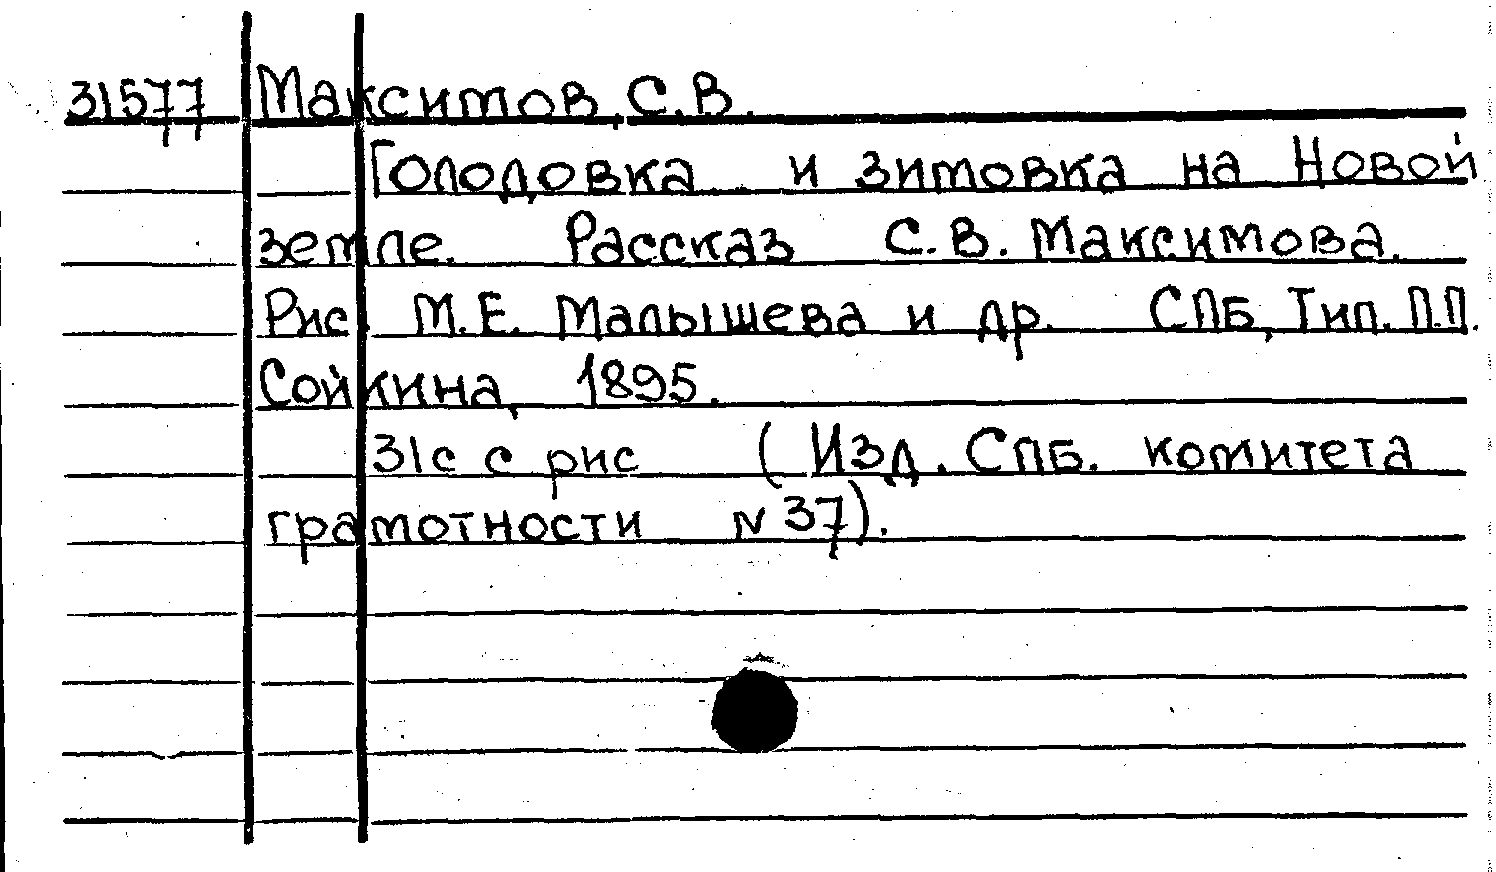 31577 Максимов, С.В.
Голодовка и зимовка на Новой
земле. Рассказ С.В. Максимова.
Рис. М.Е. Малышева и др. СПБ, Тип. П.П.
Сойкина, 1895.
31с с рис (Изд. СПБ. комитета
грамотности N 37).